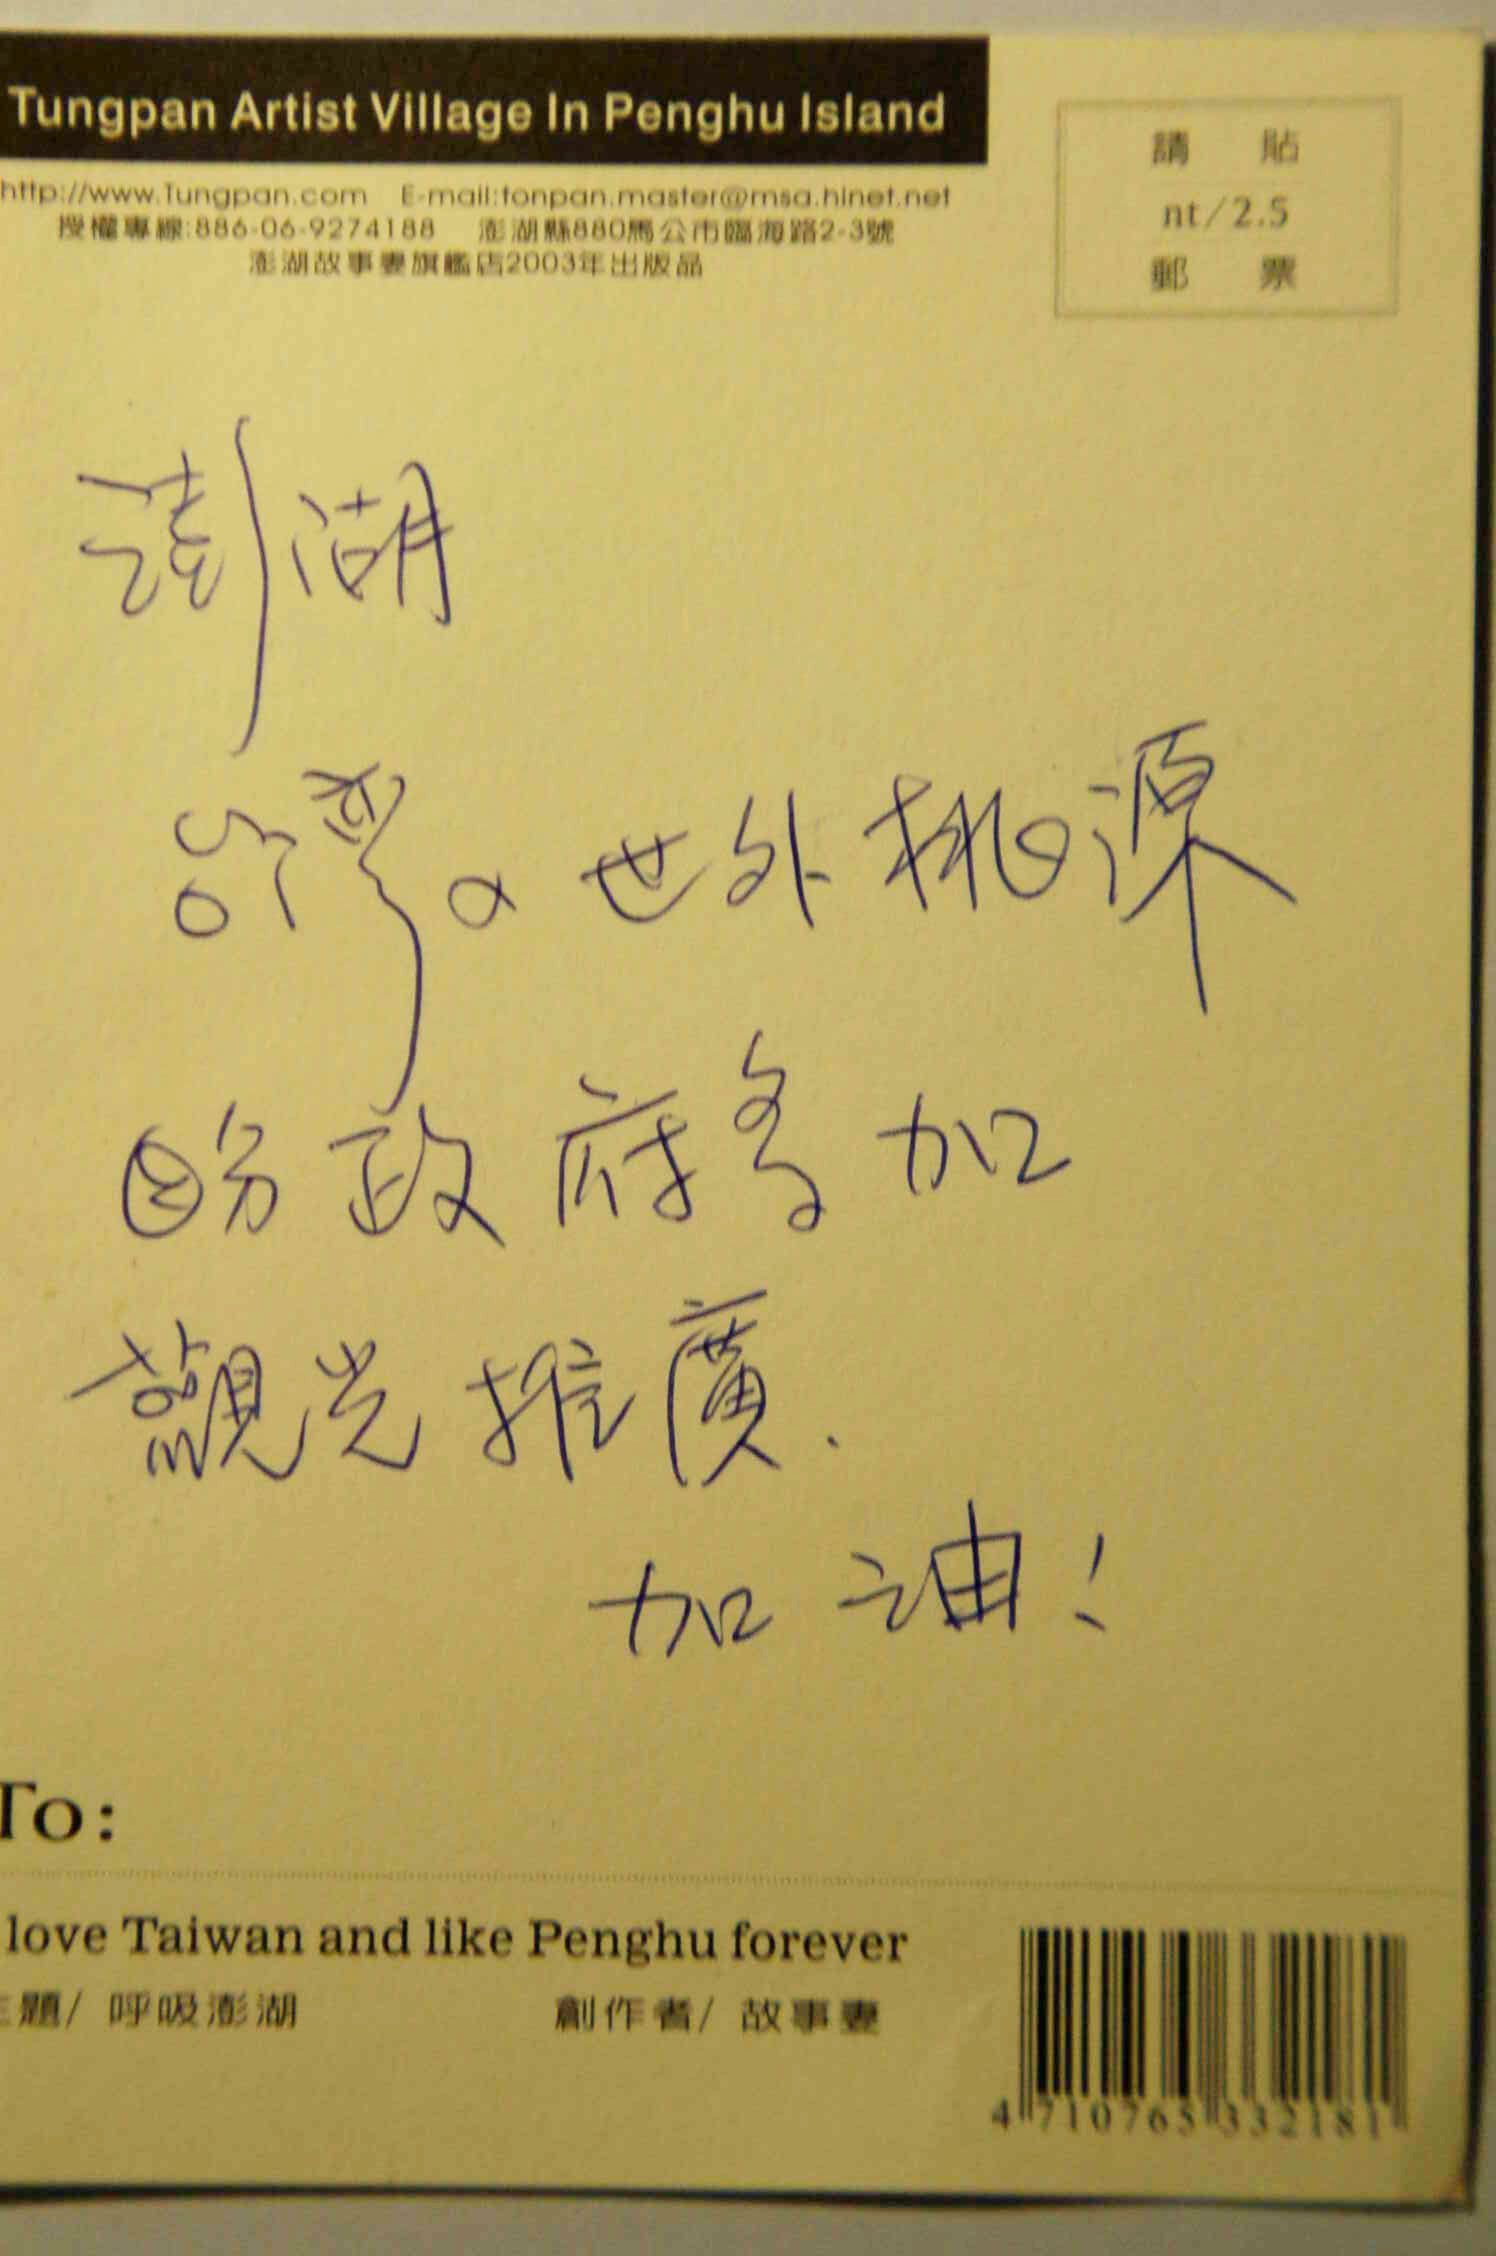 Tungpan Artist Village In Penghu Island
http://www.Tungpan.com E-mail:tonpan.master@msa.hinet.net
授權專線:886-06-9274188 澎湖縣880馬公市臨海路2-3號
澎湖故事妻旗艦店2003年出版品
請貼
nt/2.5
郵票
澎湖
台灣的世外桃源
盼政府多加
觀光推廣.
加油!
To:
love Taiwan and like Penghu forever
主題/ 呼吸澎湖 創作者/ 故事妻
4 710765 332181